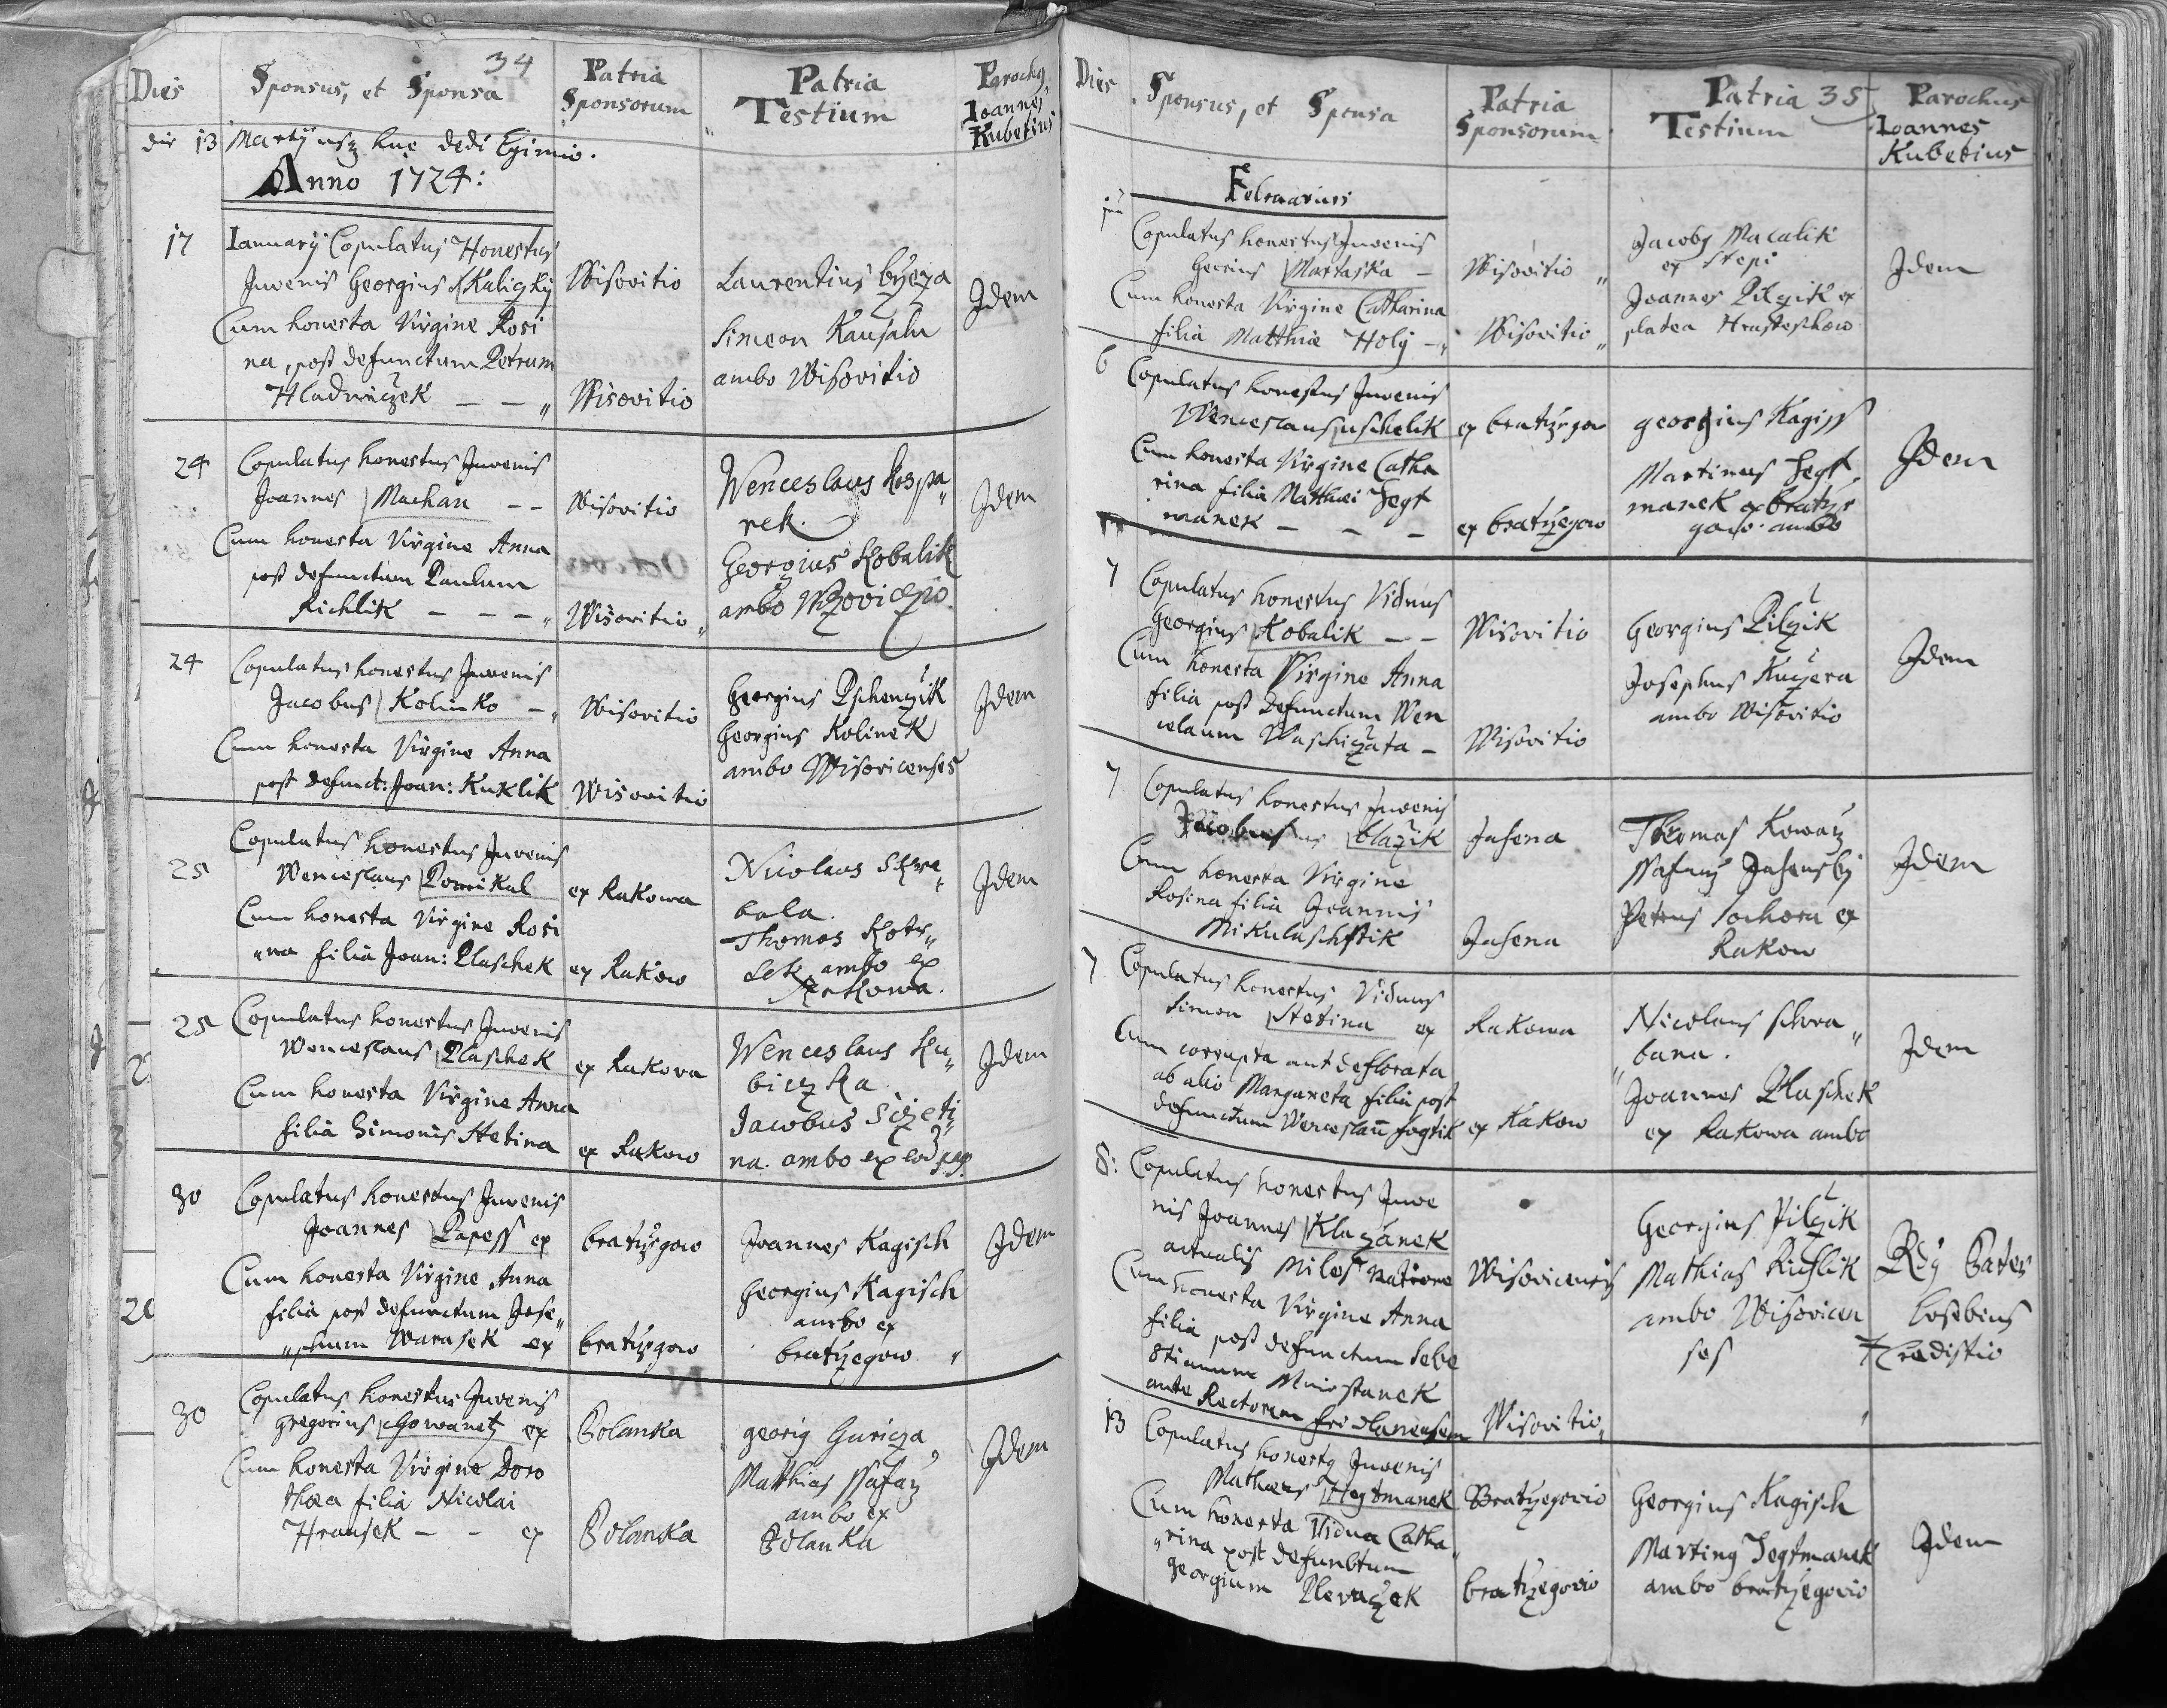 34
Dies
Sponsus, et Sponsa
Patria
Sponsorum
Patria
Testium
Paroch9
Ioannes
Kubetius
die 13 Martÿ usq huc dedi Eximio.
Anno 1724:
17
Ianuarÿ Copulatus Honestus
Juvenis Georgius Kaliczkÿ
Wisovitio
Cum honesta Virgine Rosi
na, post defunctum Petrum
Hladimiczek — — „
Wisovitio
Laurentius
Simeon
ambo Wisovitio
Idem
24
Copulatus honestus Juvenis
Joannes Machan — —
Wisovitio
Cum honesta Virgine Anna
post defunctum Paulum
Richlik — — — „
Wisovitio „
Wenceslaus Kospa„
rek.
Georgius Kobalik
ambo Wizoviczio
Idem
24
Copulatus honestus Juvenis
Jacobus Kolinko — „
Wisovitio
Cum honesta Virgine Anna
post defunct: Joan: Kuklik
Wisovitio
Georgius Pschenczik
Georgius Kolinek
ambo Wisovicenses
Idem
25
Copulatus honestus Juvenis
Wenceslaus Pomikal
ex Rakowa
Cum honesta Virgine Rosi
„na filia Joan: Plaschek
ex Rakow
Nicolaus Skra„
bala.
Thomas Kotr„
lek ambo ex
Rakowa.
Idem
25
Copulatus honestus Juvenis
Wenceslaus Plaschek
ex Rakova
Cum honesta Virgine Anna
filia Simonis Stetina
ex Rakow
Wenceslaus Ku„
biczka
Jacobus Sczeti„
na. ambo ex eod
Idem
30
Copulatus honestus Juvenis
Joannes Papess ex
bratrzegow
Cum honesta Virgine Anna
filia post defunctum Jose„
„phum Warasek ex
bratrzegow
Joannes Kagisch
Georgius Kagisch
ambo ex
bratrzegow „
Idem
30
Copulatus honestus Juvenis
Gregorius Gowanetz ex
Polanka
Cum honesta Virgine Doro
thea filia Nicolai
Hransek — — ex
Polanka
georig Guricza
Matthias ssafarz
ambo ex
Polanka
Idem
35
Dies
Sponsus, et Sponsa
Patria
Sponsorum
Patria
Testium
Parochus
Ioannes
Kubetius
Februarius
Copulatus honestus Juvenis
Martaska —
Wisovitio „
Cum honesta Virgine Catharina
filia Matthiæ Holÿ — „
Wisovitio „
Jacob9 Macalik
ex Stepi
Joannes Pilczik ex
platea
Idem
6
Copulatus honestus Juvenis
Wenceslaus uschelik
ex bratrzegow
Cum honesta Virgine Catha
rina filia Matthæi Jegt
manek — — —
ex bratrzegow
georgius Kagiss
Martinus Jegt
manek ex bratrze
gow ambo
Idem
7
Copulatus honestus Viduus
Georgius Kobalik — —
Wisovitio
Cum honesta Virgine Anna
filia post Defunctum Wen
celaum Waschiczata —
Wisovitio
Georgius Pilczik
Josephus Kuczera
ambo Wisovitio
Idem
7
Copulatus honestus Juvenis
Jacobus blazik
Jasena
Cum honesta Virgine
Rosina filia Joannis
Mikulaschtik
Jasena
Thomas Kowarz
ssafarz Jasenskÿ
Petrus Sochora ex
Rakow
Idem
7
Copulatus honestus Viduus
Simon Stetina ex
Rakowa
Cum corrupta aut deflorata
ab alio Margareta filia post
defunctum Wenceslaū fogtik
ex Rakow
Nicolaus schra„
bana.
Joannes Plaschek
ex Rakowa ambo
Idem
8:
Copulatus honestus Juve
nis Joannes Klazanek
actualis Miles natione
Wisovicensis
Cum honesta Virgine Anna
filia post defunctum Seba
stianum Minostanek
ante Rectorem fridlanensem
Wisovitio „
Georgius Pilczik
Mathias Richlik
ambo Wisovicen
ses
Pater
Eusebius
13
Copulatus honest9 Juvenis
Mathæus Hegtmanek
Bratrzegovio
Cum honesta Vidua Catha„
„rina post defunctum
Georgium Plevaczek
bratrzegovio
Georgius Kagisch
Martin9 Jegtmanek
ambo bratrzegovio
Idem